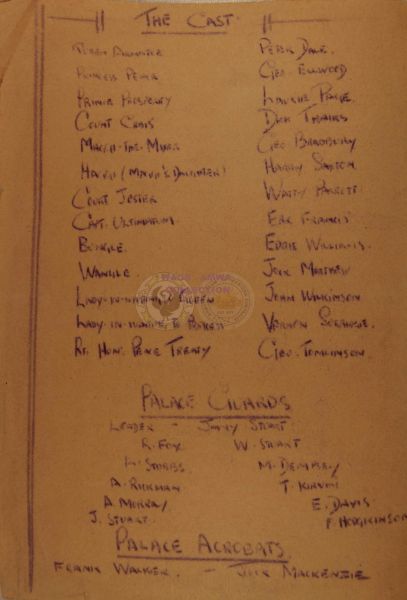 THE CAST
QUEEN ARMISTICE PETER DALE.
PRINCESS PEACE GEO. ELLWOOD
PRINCE PROSPERITY LAURIE PAYNE.
COUNT CHAOS DICK TRAVIS
MARCO-THE-MINER GEO BRADBURY
(MARCO'S DAUGHTER) HARRY SAXTON
COURT JESTER WATTY
CAPT. ULTIMATUM. ERIC FRANCIS
BUNGLE. EDDIE WILLIAMS.
WANGLE. JOCK MATTHEW
LADY-IN-WAITING TO QUEEN JOHN WILKINSON
LADY-IN-WAITING TO VERNON
RT. HON. PEACE TREATY GEO. TOMLINSON.
PALACE GUARDS
LEADER - JIMMY STUART
R. FOX W. STUART
STOBBS. M. DEMPSEY
A. RICKMAN T. KIRWIN
A. MURRAY E. DAVIS
J. STUART. F HODGKINSON
PALACE ACROBATS.
FRANK WALKER. - JACK MACKENZIE